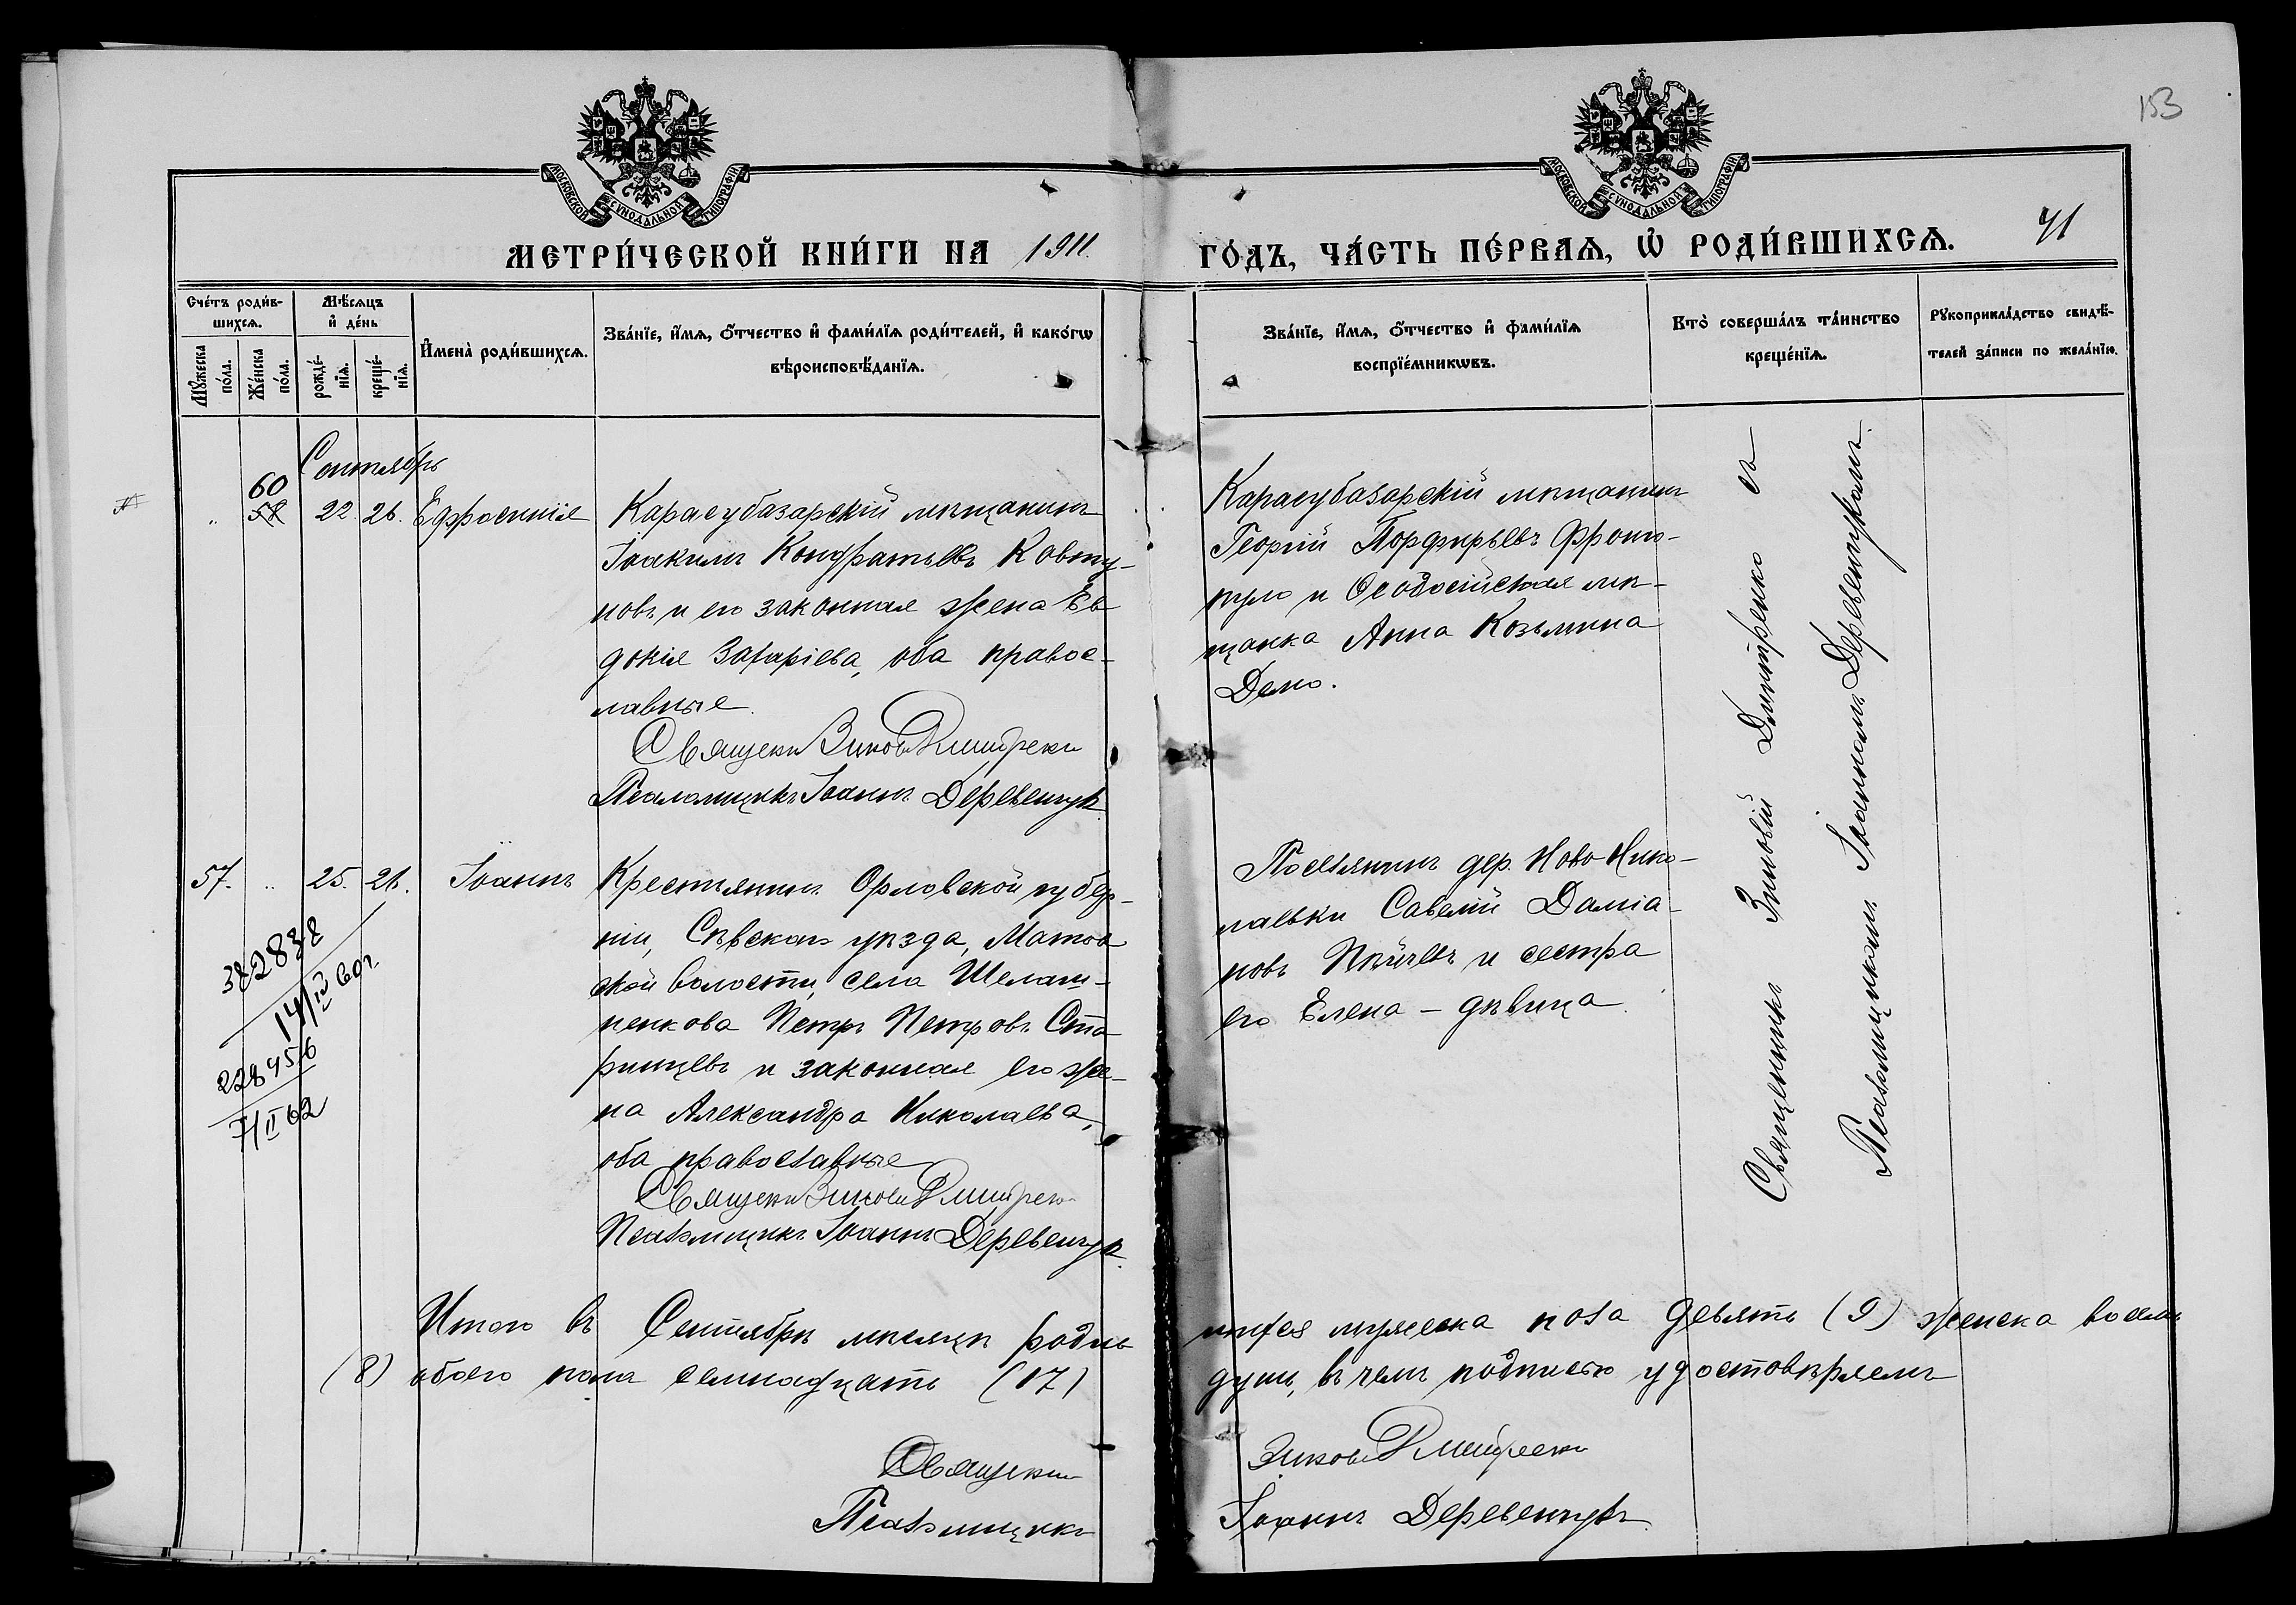 153
МОСКОВСКОЙ СУНОДАЛЬНОЙ ТИПОГРАФІИ
МОСКОВСКОЙ СУНОДАЛЬНОЙ ТИПОГРАФІИ
МЕТРИ́ЧЕСКОЙ КНИ́ГИ НА 1911.
ГО́ДЪ, ЧА́СТЬ ПЕ́РВАѦ, Ѡ҆ РОДИ́ВШИХСѦ. 41
Сче́тъ роди́в-
шихсѧ.
Мꙋ́жеска
по́ла.
Же́нска
по́ла.
Мѣ́сѧцъ
и҆ де́нь
рожде́-
нїѧ.
креще́-
нїѧ.
И҆мена̀ роди́вшихсѧ.
Зва́нїе, и҆́мѧ, ѻ҆́тчество и҆ фами́лїѧ роди́телей, и҆ како́гѡ
вѣроисповѣ́данїѧ.
Зва́нїе, и҆́мѧ, ѻ҆́тчество и҆ фами́лїѧ
воспрїе́мникѡвъ.
Кто̀ соверша́лъ та́инство
креще́нїѧ.
Рꙋкоприкла́дство свидѣ́-
телей за́писи по жела́нїю.
Сентябрь
60
58 22. 26. Ефросинія
Карасубазарскій мѣщанинъ
Іоакимъ Кондратьевъ Ковту-
новъ и его законная жена Ев
докія Захаріева, оба правос-
лавные.
Священ Зинові Дмитренко
Псаломщикъ Іоаннъ Деревенчук
Карасубазарскій мѣщанинъ
Георгій Порфирьевъ
и Ѳеодосійская мѣ-
щанка Анна Козьмина
Священникъ Зиновій Дмитренко съ
Псаломщикомъ Іоанномъ Деревенчукомъ.
57. 25. 26. Іоаннъ
Крестьянинъ Орловской губер-
ніи, Сѣвскаго уѣзда,
ской волости, села Шелаш-
ненкова Петръ Петровъ Ста
рицевъ и законная его же-
на Александра Николаева,
оба православные
Священ Зинові Дмитренко
Псаломщикъ Іоаннъ Деревенчук.
Поселянинъ дер. Ново-Нико-
лаевки Савелій Даміа-
новъ и сестра
его Елена - дѣвица.
14/IV 60г
228456
7/II 62
Итого въ Сентябрѣ мѣсяцѣ роди-
вшихся мужеска пола девять (9) женска восемь
(8) обоего пола семнадцать (17)
душъ, въ чемъ подписью удостовѣряемъ
Священник Зинові Дмитренко
Псаломщикъ Іоаннъ Деревенчукъ.